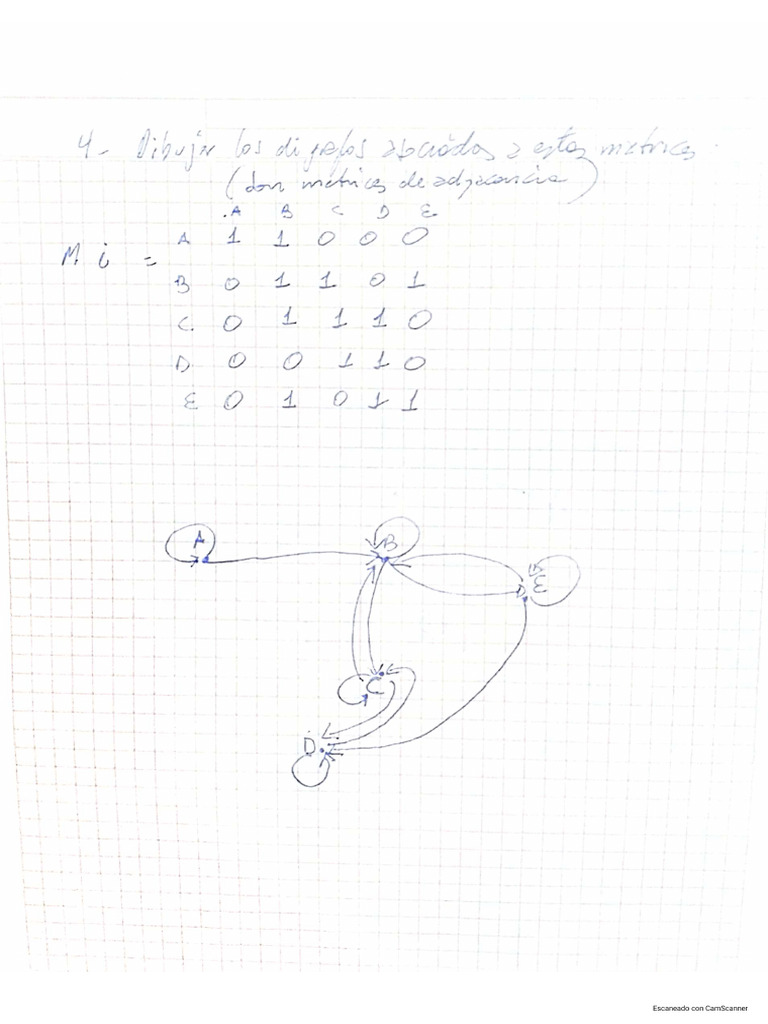 4- Dibujar los digrafos asociados a estas matrices
(son matrices de adyacencia)
A B C D E
A 1 1 0 0 0
Mi =
B 0 1 1 0 1
C. 0 1 1 1 0
D 0 0 1 1 0
E 0 1 0 1 1
A B
E
C
D
Escaneado con CamScanner